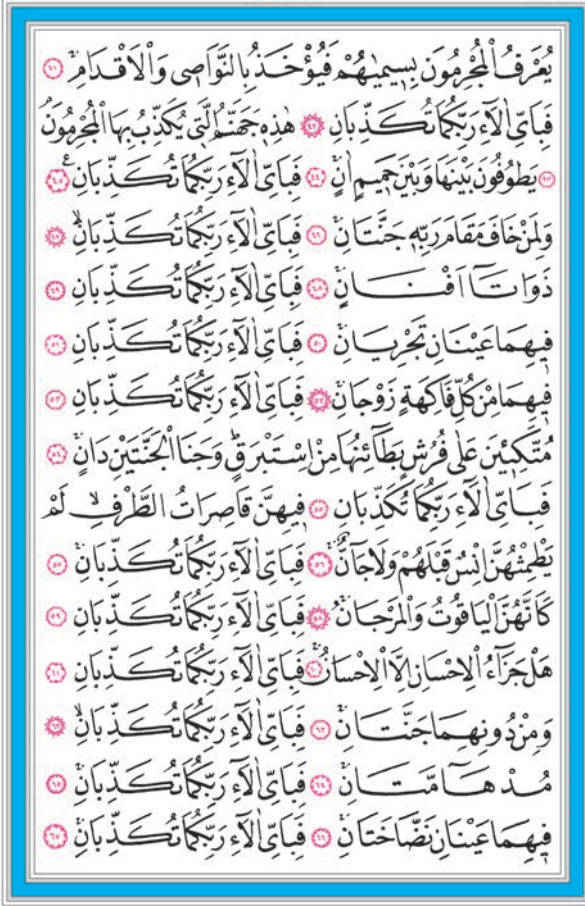 يُعْرَفُ الْمُجْرِمُونَ بِسِيمٰيهُمْ فَيُؤْخَذُ بِالنَّوَاصِي وَالْاَقْدَامِۚ ﴿٤١﴾
فَبِاَيِّ اٰلَٓاءِ رَبِّكُمَا تُكَذِّبَانِ ﴿٤٢﴾ هٰذِهِ جَهَنَّمُ الَّتِي يُكَذِّبُ بِهَا الْمُجْرِمُونَۘ
﴿٤٣﴾ يَطُوفُونَ بَيْنَهَا وَبَيْنَ حَمِيمٍ اٰنٍۚ ﴿٤٤﴾ فَبِاَيِّ اٰلَٓاءِ رَبِّكُمَا تُكَذِّبَانِ۟ ﴿٤٥﴾
وَلِمَنْ خَافَ مَقَامَ رَبِّهِ جَنَّتَانِۚ ﴿٤٦﴾ فَبِاَيِّ اٰلَٓاءِ رَبِّكُمَا تُكَذِّبَانِۙ ﴿٤٧﴾
ذَوَاتَٓا اَفْنَانٍۚ ﴿٤٨﴾ فَبِاَيِّ اٰلَٓاءِ رَبِّكُمَا تُكَذِّبَانِ ﴿٤٩﴾
فِيهِمَا عَيْنَانِ تَجْرِيَانِۚ ﴿٥٠﴾ فَبِاَيِّ اٰلَٓاءِ رَبِّكُمَا تُكَذِّبَانِ ﴿٥١﴾
فِيهِمَا مِنْ كُلِّ فَاكِهَةٍ زَوْجَانِۚ ﴿٥٢﴾ فَبِاَيِّ اٰلَٓاءِ رَبِّكُمَا تُكَذِّبَانِ ﴿٥٣﴾
مُتَّكِـِٔينَ عَلٰى فُرُشٍ بَطَٓائِنُهَا مِنْ اِسْتَبْرَقٍۜ وَجَنَا الْجَنَّتَيْنِ دَانٍۚ ﴿٥٤﴾
فَبِاَيِّ اٰلَٓاءِ رَبِّكُمَا تُكَذِّبَانِ ﴿٥٥﴾ فِيهِنَّ قَاصِرَاتُ الطَّرْفِۙ لَمْ
يَطْمِثْهُنَّ اِنْسٌ قَبْلَهُمْ وَلَا جَٓانٌّۚ ﴿٥٦﴾ فَبِاَيِّ اٰلَٓاءِ رَبِّكُمَا تُكَذِّبَانِۚ ﴿٥٧﴾
كَاَنَّهُنَّ الْيَاقُوتُ وَالْمَرْجَانُۚ ﴿٥٨﴾ فَبِاَيِّ اٰلَٓاءِ رَبِّكُمَا تُكَذِّبَانِ ﴿٥٩﴾
هَلْ جَزَٓاءُ الْاِحْسَانِ اِلَّا الْاِحْسَانُۚ ﴿٦٠﴾ فَبِاَيِّ اٰلَٓاءِ رَبِّكُمَا تُكَذِّبَانِ ﴿٦١﴾
وَمِنْ دُونِهِمَا جَنَّتَانِۚ ﴿٦٢﴾ فَبِاَيِّ اٰلَٓاءِ رَبِّكُمَا تُكَذِّبَانِۙ ﴿٦٣﴾
مُدْهَٓامَّتَانِۚ ﴿٦٤﴾ فَبِاَيِّ اٰلَٓاءِ رَبِّكُمَا تُكَذِّبَانِۚ ﴿٦٥﴾
فِيهِمَا عَيْنَانِ نَضَّاخَتَانِۚ ﴿٦٦﴾ فَبِاَيِّ اٰلَٓاءِ رَبِّكُمَا تُكَذِّبَانِۚ ﴿٦٧﴾